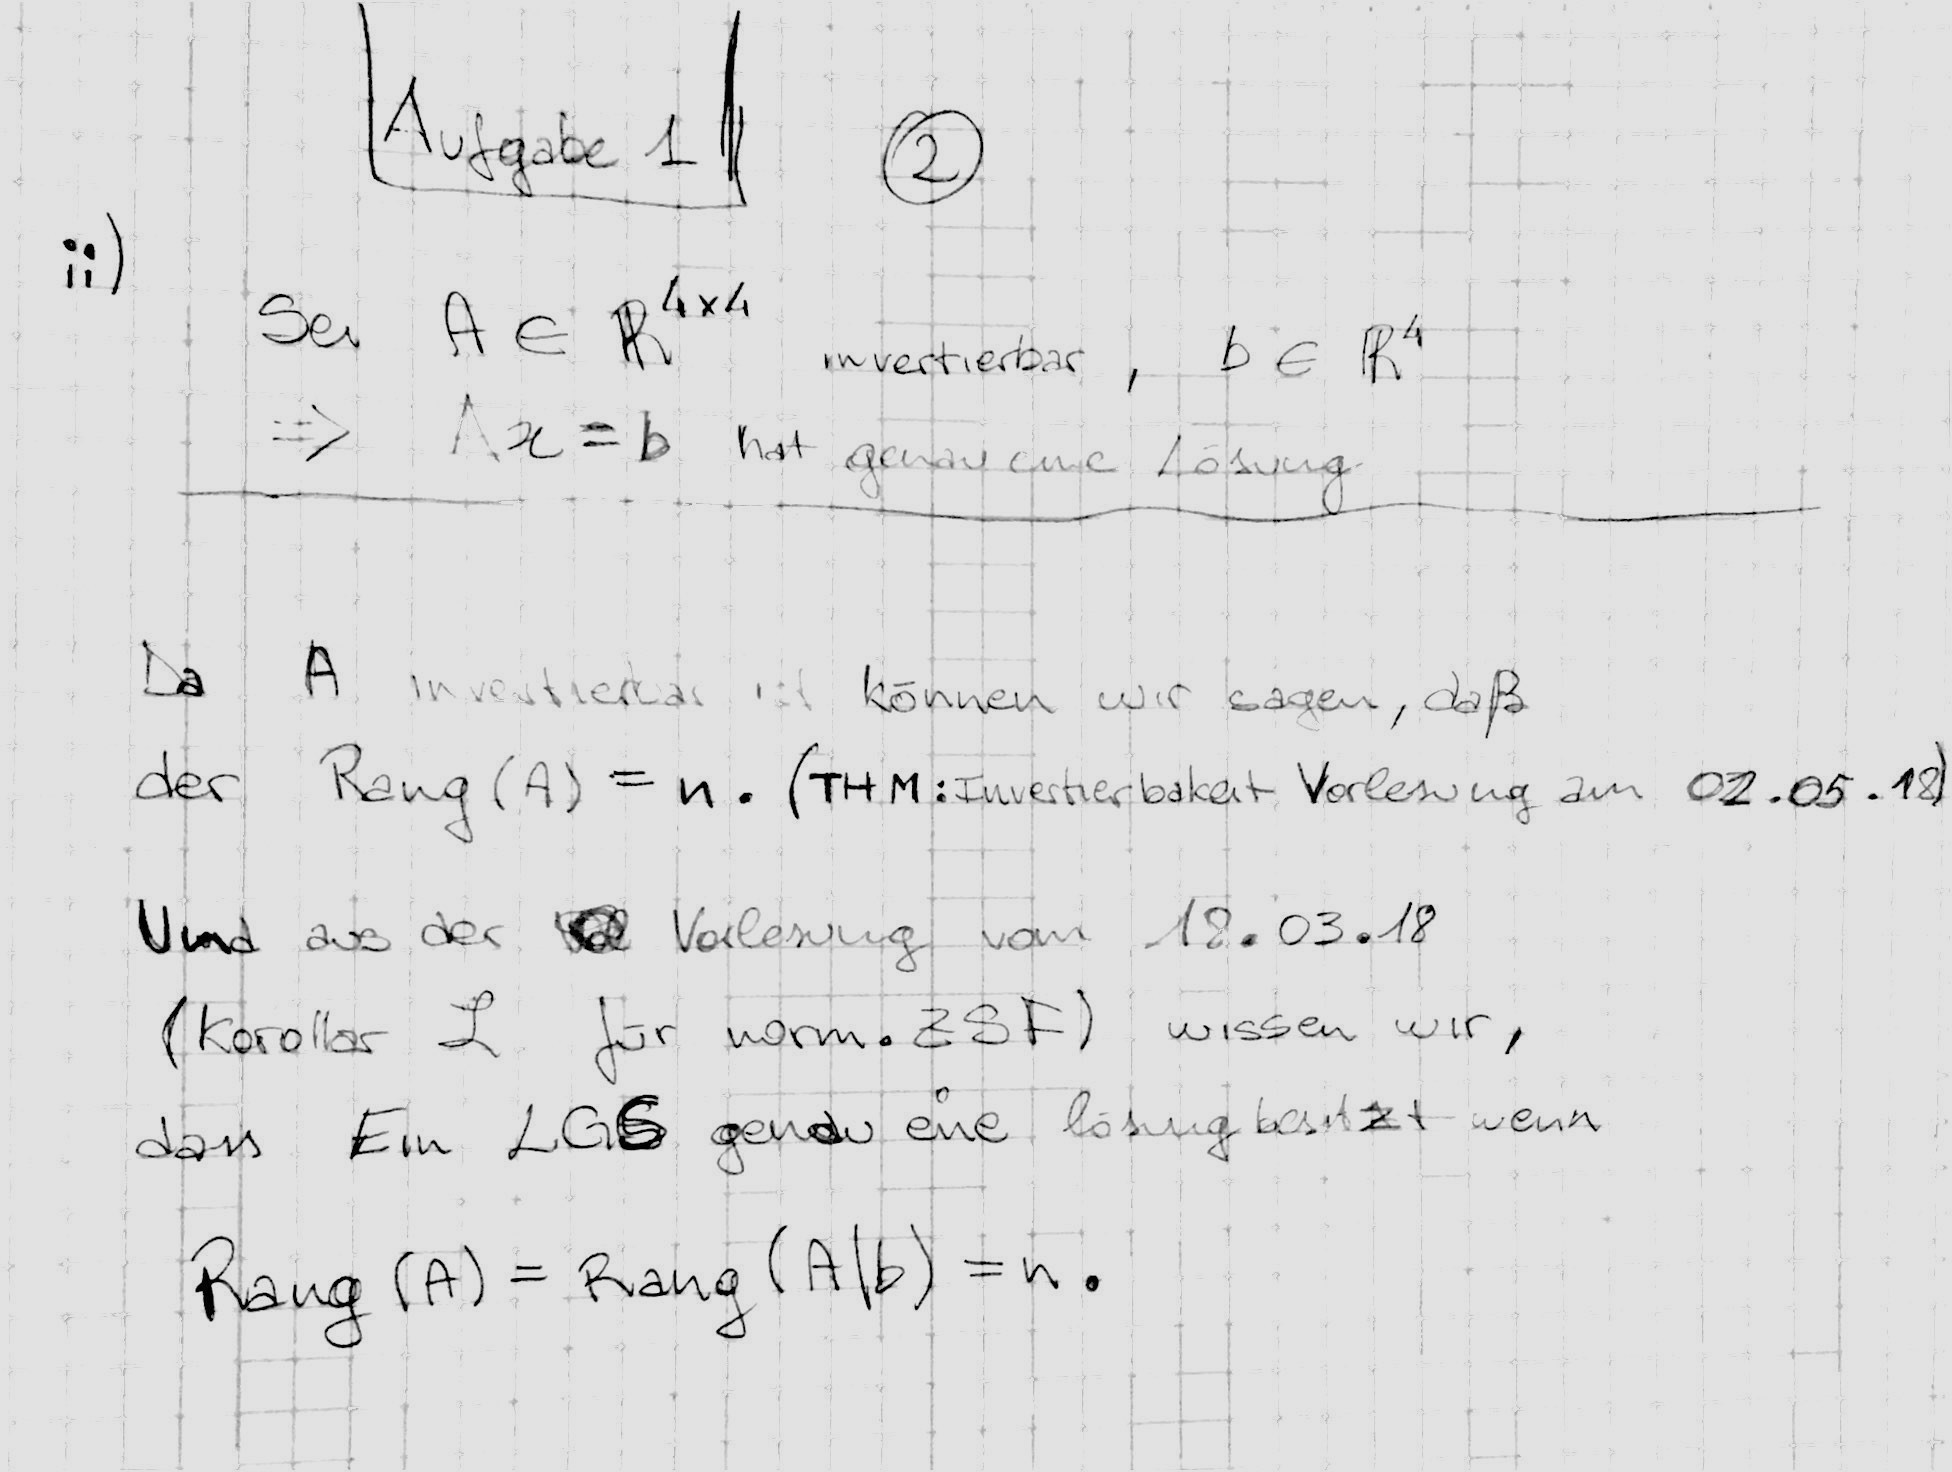 Aufgabe 1 ②
ii)
Sei A ∈ ℝ^{4×4} invertierbar, b ∈ ℝ^4
=> Ax = b hat genau eine Lösung
Da A invertierbar ist können wir sagen, daß
der Rang (A) = n. (THM: Invertierbakeit Vorlesung am 02.05.18)
Und aus der Vorlesung vom 18.03.18
(Korollar L für norm. ZSF) wissen wir,
dass Ein LGS genau eine lösung besitzt wenn
Rang (A) = Rang (A|b) = n.